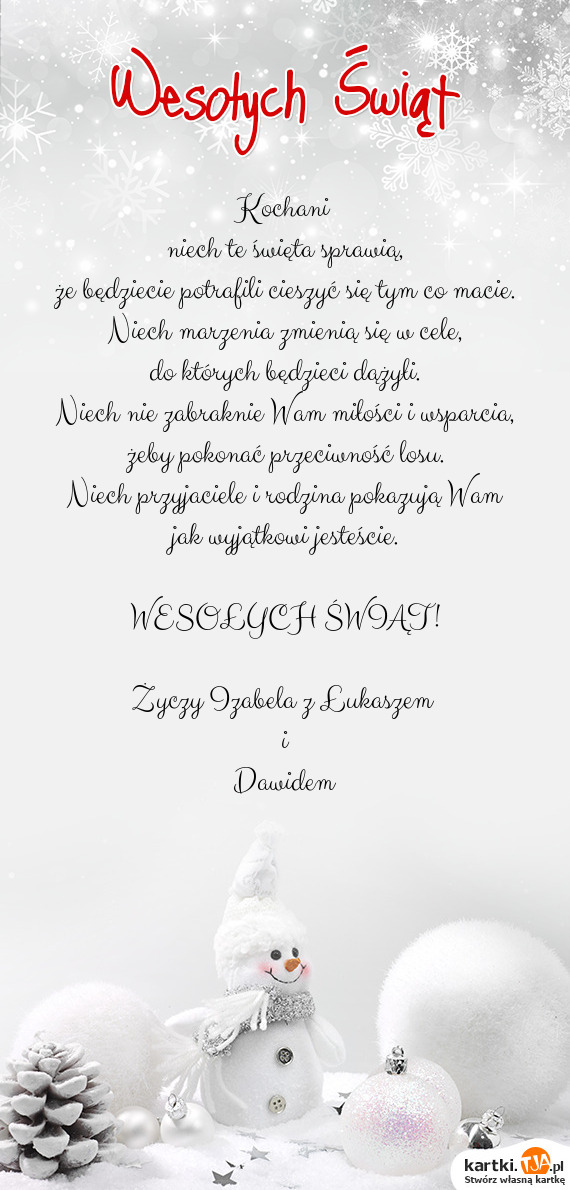 Wesołych Świąt
Kochani
niech te święta sprawią,
że będziecie potrafili cieszyć się tym co macie.
Niech marzenia zmienią się w cele,
do których będzieci dążyli.
Niech nie zabraknie Wam miłości i wsparcia,
żeby pokonać przeciwność losu.
Niech przyjaciele i rodzina pokazują Wam
jak wyjątkowi jesteście.
WESOŁYCH ŚWIĄT!
Życzy Izabela z Łukaszem
i
Dawidem
kartki.TJA.pl
Stwórz własną kartkę